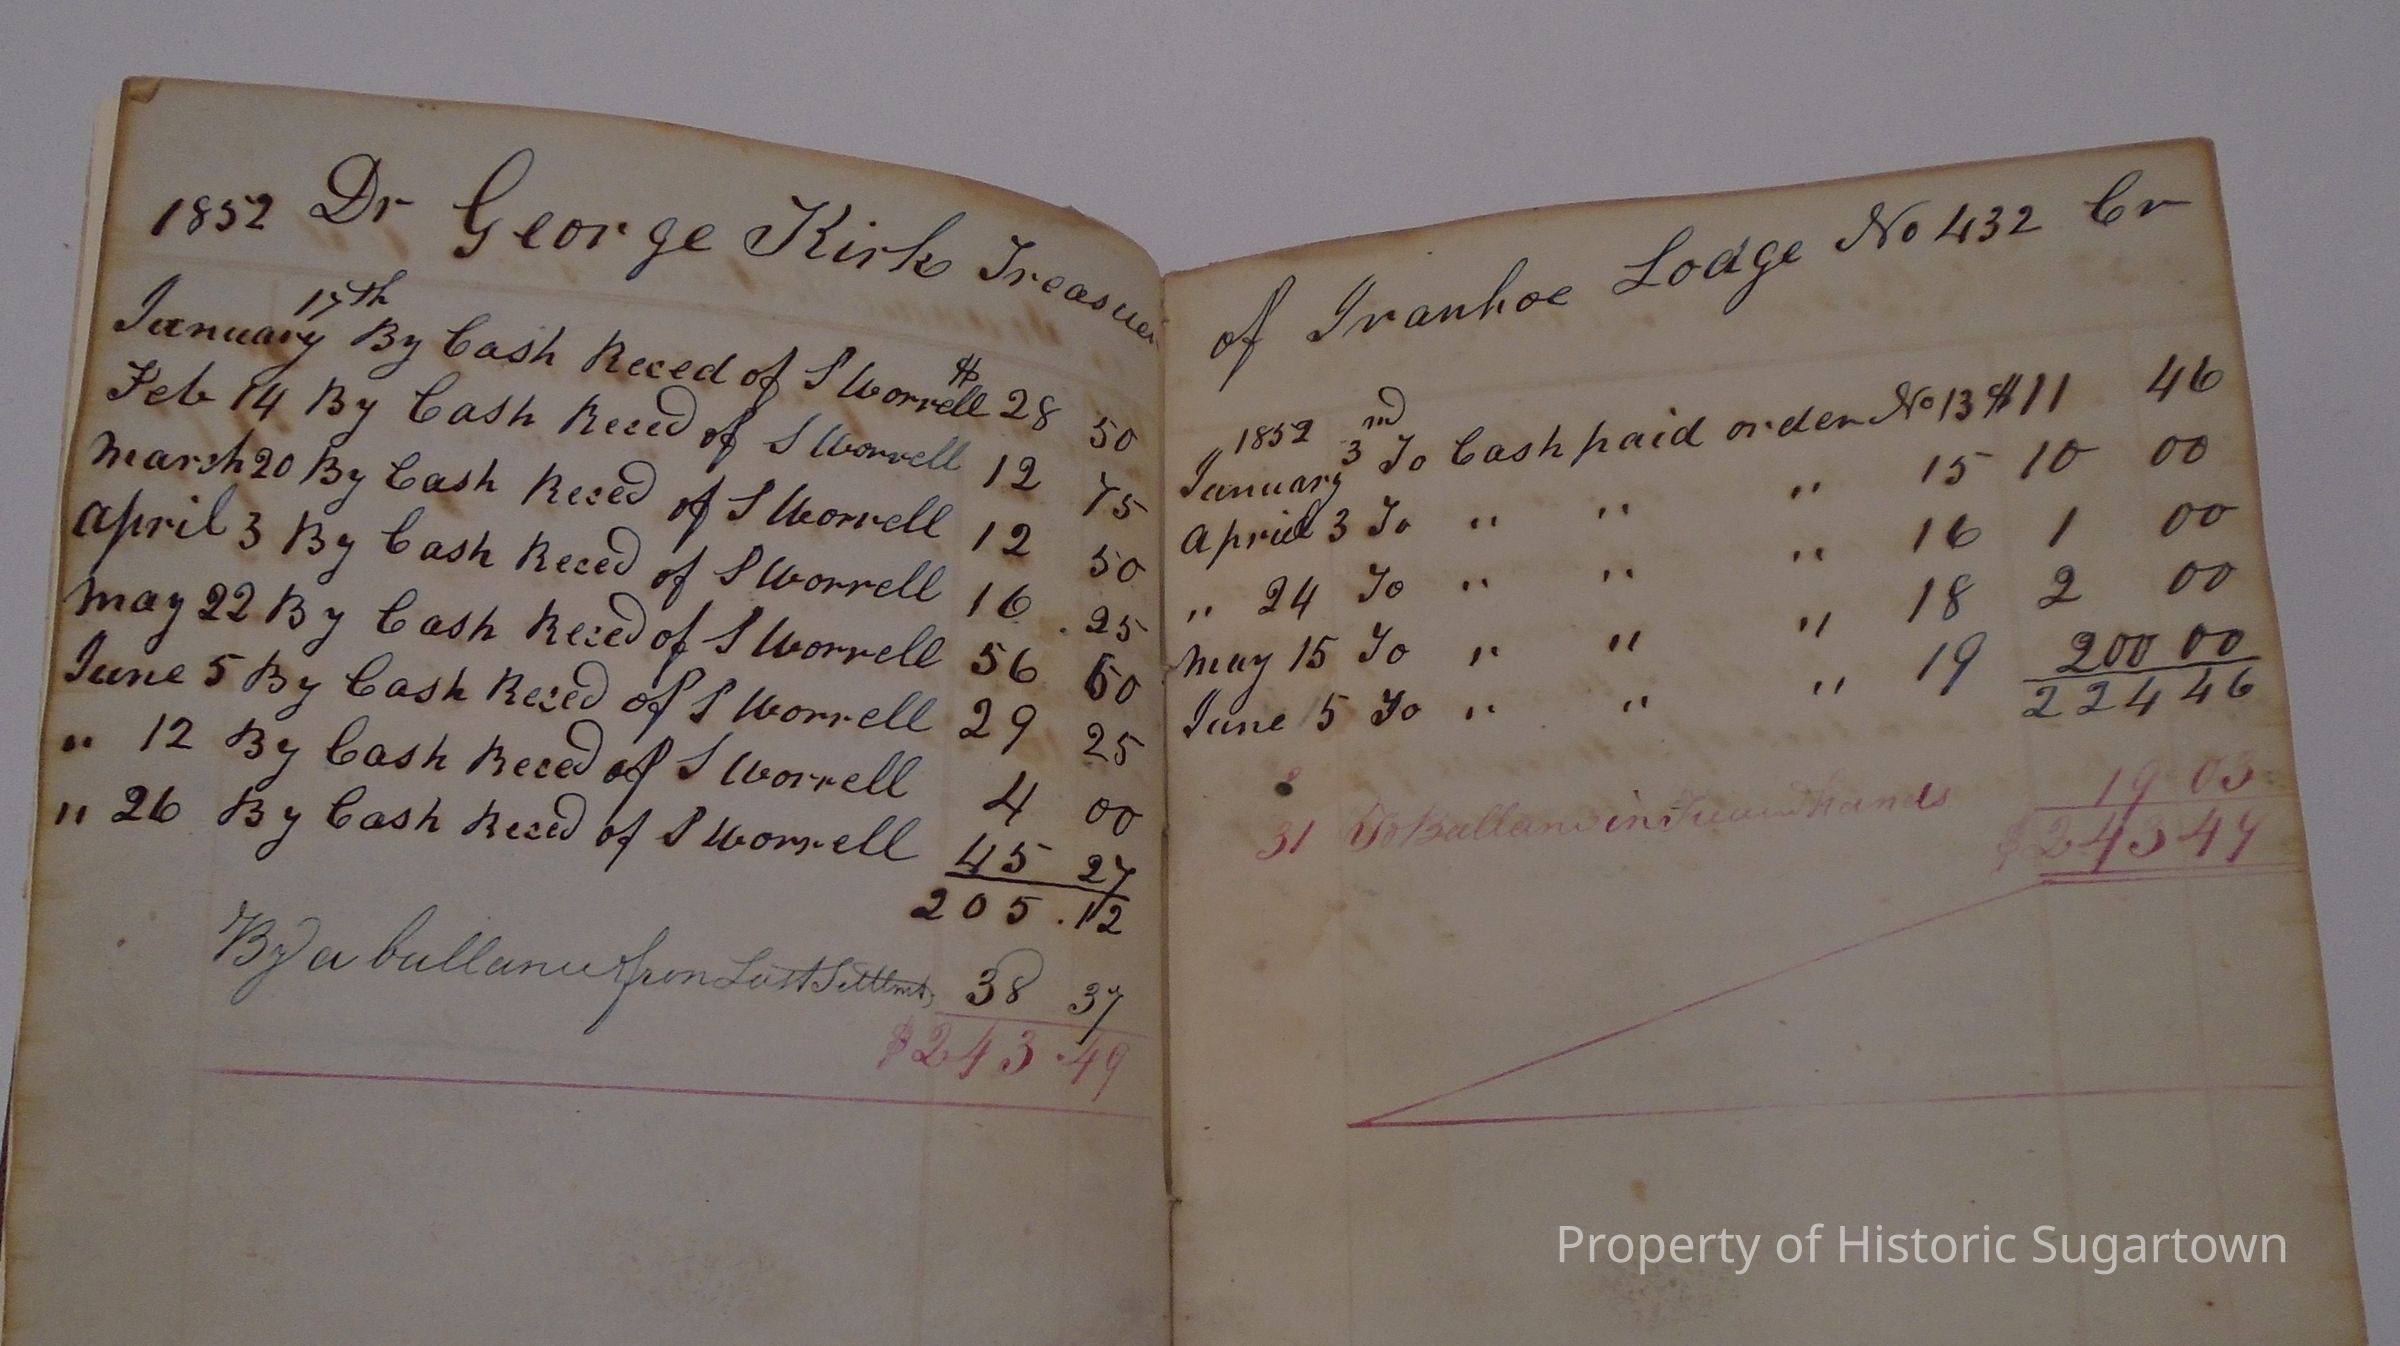 1852 Dr George Kirk Treasurer
January 17th By Cash Reced of S Worrell $ 28 50
Feb 14 By Cash Reced of S Worrell 12 75
March 20 By Cash Reced of S Worrell 12 50
April 3 By Cash Reced of S Worrell 16 . 25
May 22 By Cash Reced of S Worrell 56 60
June 5 By Cash Reced of S Worrell 29 25
" 12 By Cash Reced of S Worrell 4 00
" 26 By Cash Reced of S Worrell 45 27
205 . 12
By a ballance from Last Settlmt 38 37
$243.49
of Ivanhoe Lodge No 432 Cr
1852
January 3nd To Cash paid order No 13 $11 46
April 3 To " " " 15 10 00
" 24 To " " " 16 1 00
May 15 To " " " 18 2 00
June 5 To " " " 19 200 00
224 46
31 To Ballance in hands 19 03
$243 49
Property of Historic Sugartown